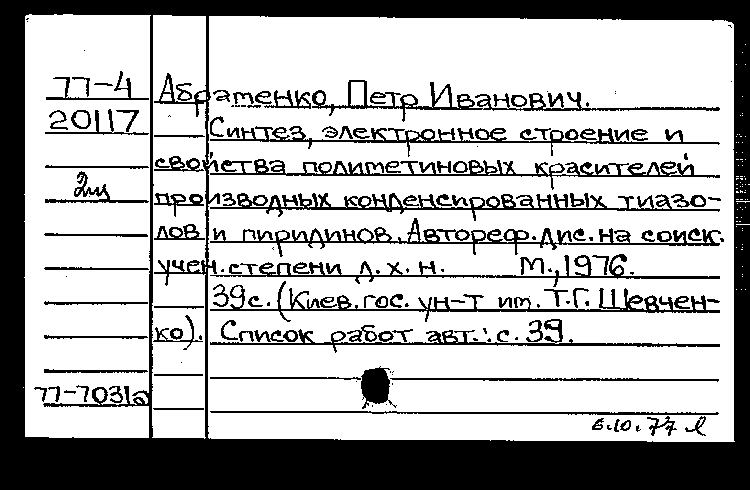 77-4 Абратенко, Петр Иванович.
20117 Синтез, электронное строение и
свойства полиметиновых красителей
2щ производных конденсированных тиазо-
лов и пиридинов. Автореф. дис. на соиск.
учен. степени д. х. н. М., 1976.
39 с. (Киев. гос. ун-т им. Т.Г. Шевчен-
ко). Список работ авт.: с. 39.
77-7031а
6.10.77